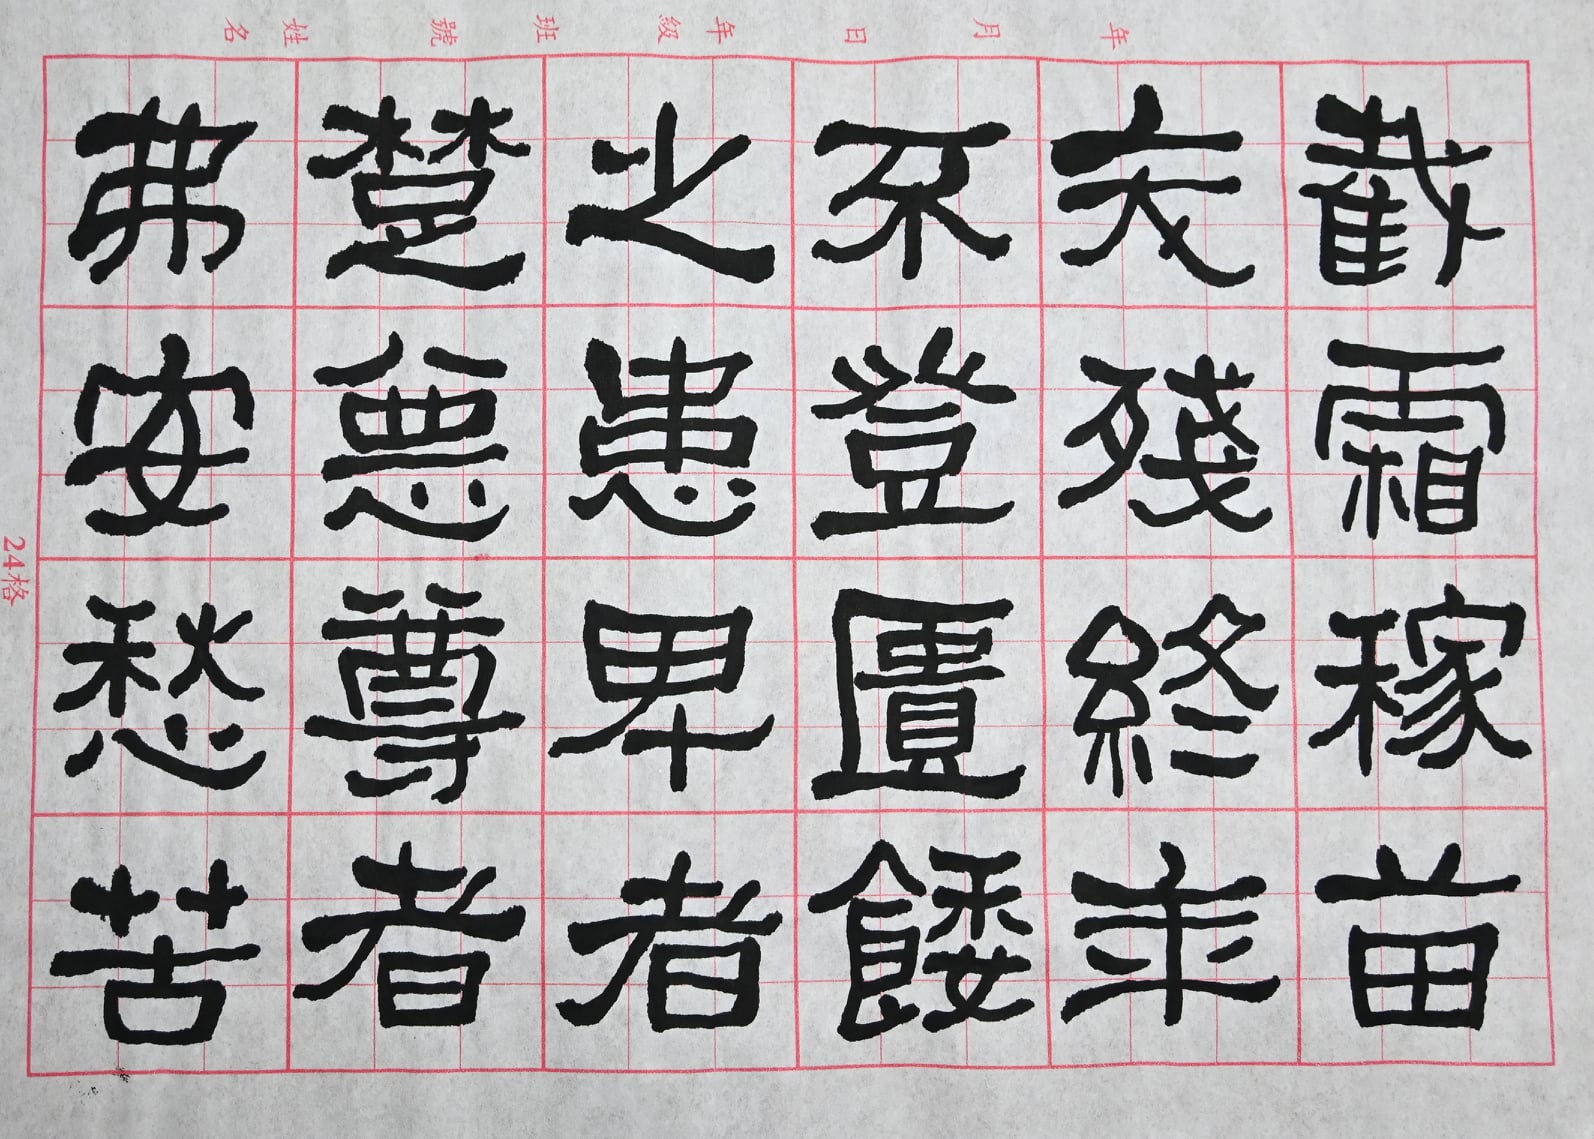 年 月 日 年級 班 號 姓名
截霜稼苗
夭殘終年
不登匱餧
之患卑者
楚惡尊者
弗安愁苦
24格